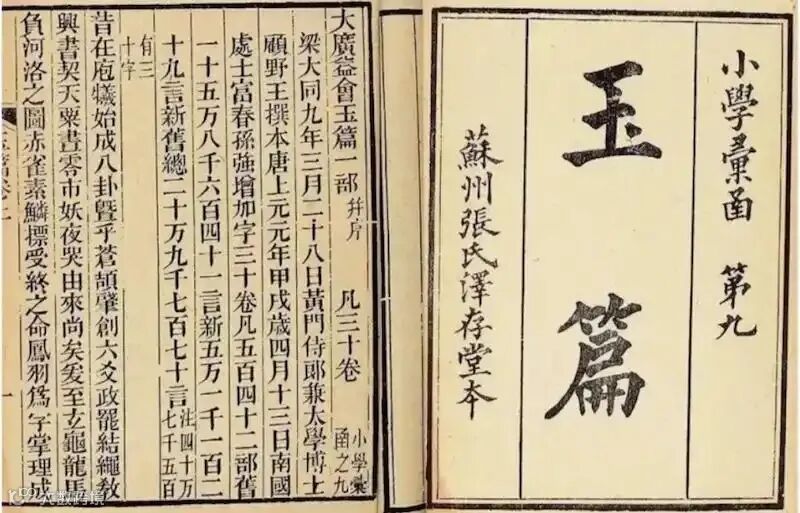 小學彙函 第九
玉篇
蘇州張氏澤存堂本
大廣益會玉篇一部 并序 凡三十卷 小學彙函之九
梁大同九年三月二十八日黃門侍郎兼太學博士
顧野王撰本唐上元元年甲戌歲四月十三日南國
處士富春孫強增加字三十卷凡五百四十二部舊
一十五万八千六百四十一言新五万一千一百二
十九言新舊總二十万九千七百七十言 注四十万七千五百
有三十字
昔在庖犧始成八卦暨乎蒼頡肇創六爻政罷結繩教
興書契天粟晝零市妖夜哭由來尚矣爰至玄龜龍馬
負河洛之圖赤雀素鱗標受終之命鳳羽爲字掌理成
一
大数跨境